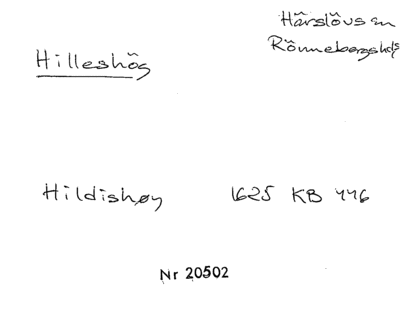 Härslövs sn
Rönnebergshds
Hilleshög
Hildishøy 1625 KB 446
Nr 20502